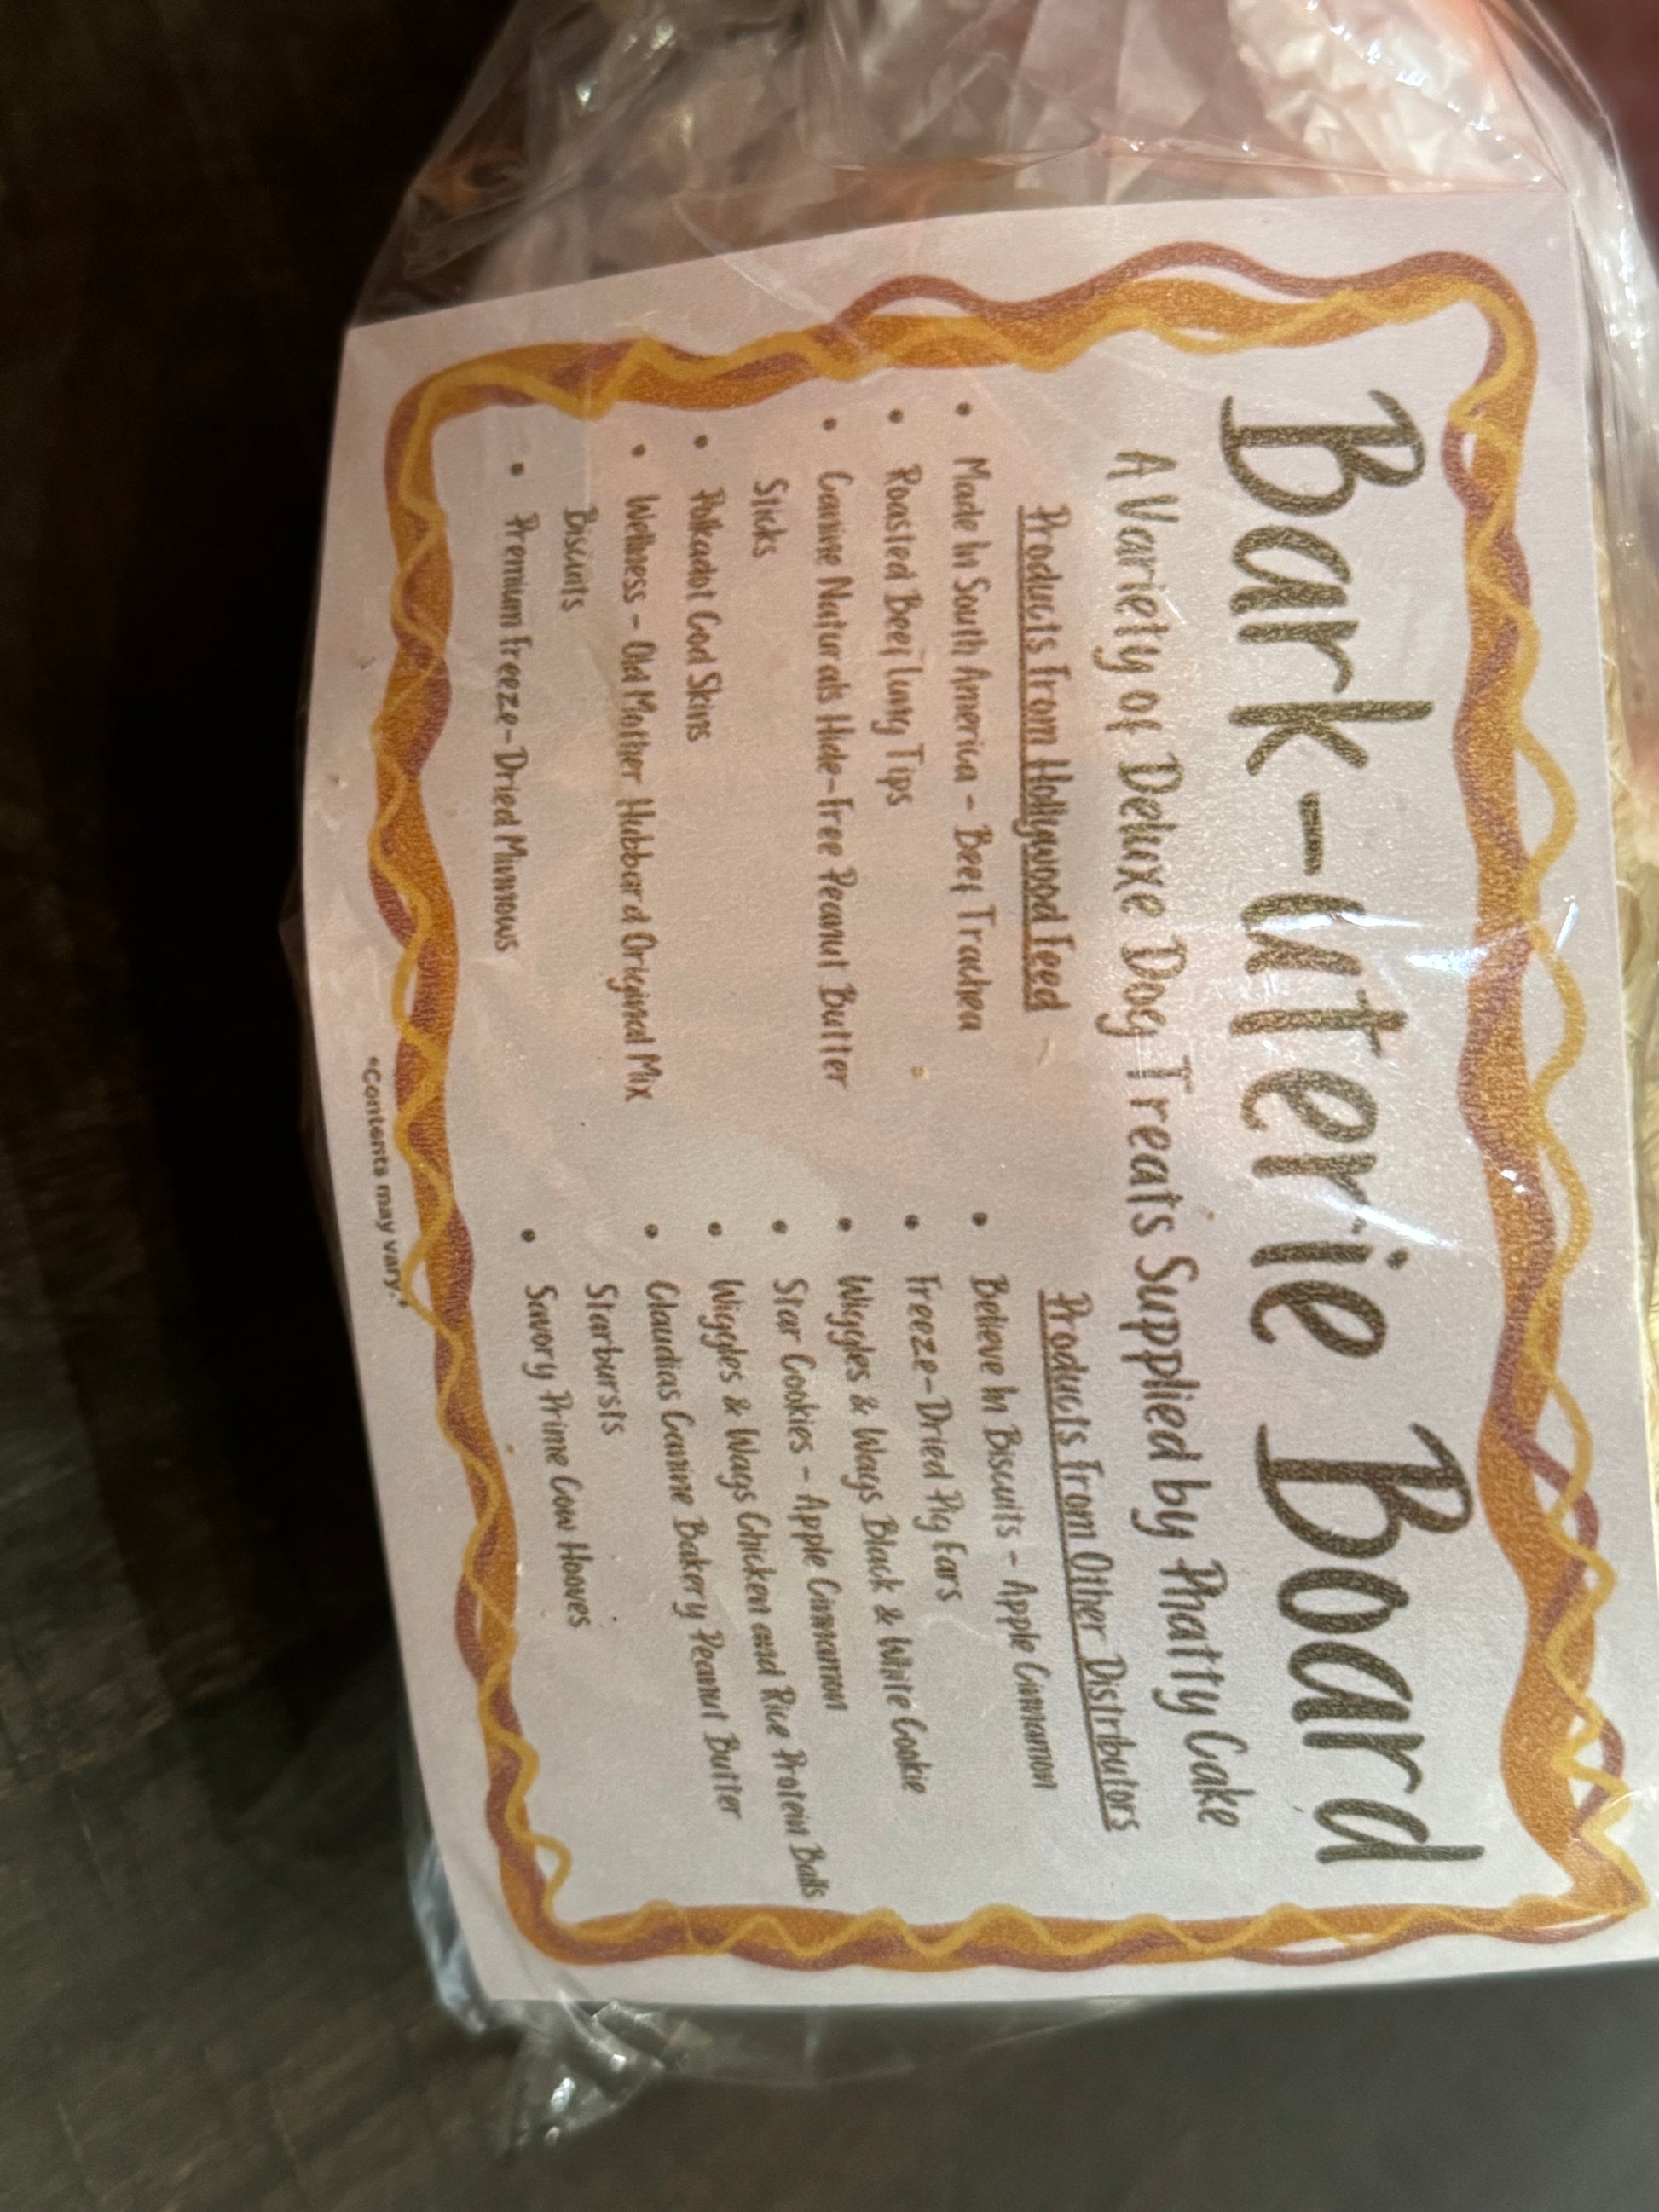 Bark-uterie Board
A Variety of Deluxe Dog Treats Supplied by Phatty Cake
Products From Hollywood Feed
• Made In South America - Beef Trachea
• Roasted Beef Lung Tips
• Canine Naturals Hide-Free Peanut Butter
Sticks
• Polkadot Cod Skins
• Wellness - Old Mother Hubbard Original Mix
Biscuits
• Premium Freeze-Dried Minnows
Products From Other Distributors
• Believe In Biscuits - Apple Cinnamon
• Freeze-Dried Pig Ears
• Wiggles & Wags Black & White Cookie
• Star Cookies - Apple Cinnamon
• Wiggles & Wags Chicken and Rice Protein Balls
• Claudias Canine Bakery Peanut Butter
Starbursts
• Savory Prime Cow Hooves
*Contents may vary.*